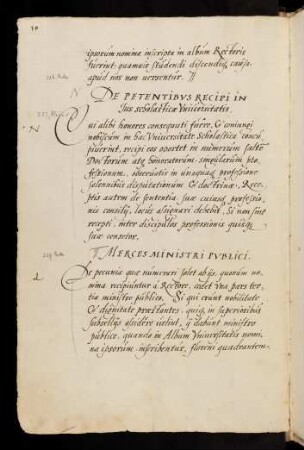 ipsorum nomina inscripta in album Rectoris
fuerint: quamuis studendi discendiq; causa
apud nos non uersentur.
DE PETENTIBVS RECIPI IN
Ius scholasticæ Vniuersitatis.
N
Qui alibi honores consequuti fuere, & coniungi
nobiscum in hac Vniuersitate Scholastica concu
piuerint, recipi eos oportet in numerum saltem
Doctorum atq; honoratorum singularum pro
fessionum, obseruatis in unaquaq; professione
solennibus disputationum & doctrinæ. Rece
ptis autem de sententia suæ cuiusq; professio
nis consilij, locus assignari debebit. Si non sint
recepti, inter discipulos professionis quisq;
suæ censetor.
MERCES MINISTRI PVBLICI.
De pecunia quæ numerari solet ab ijs, quorum no
mina recipiuntur à Rectore, cedet una pars ter
tia ministro publico. Si qui erunt nobilitate
& dignitate præstantes, quiq; in superioribus
subsellijs assidere uelint, ij dabunt ministro
publico, quando in Album Vniuersitatis nomi
na ipsorum inscribentur, floreni quadrantem.